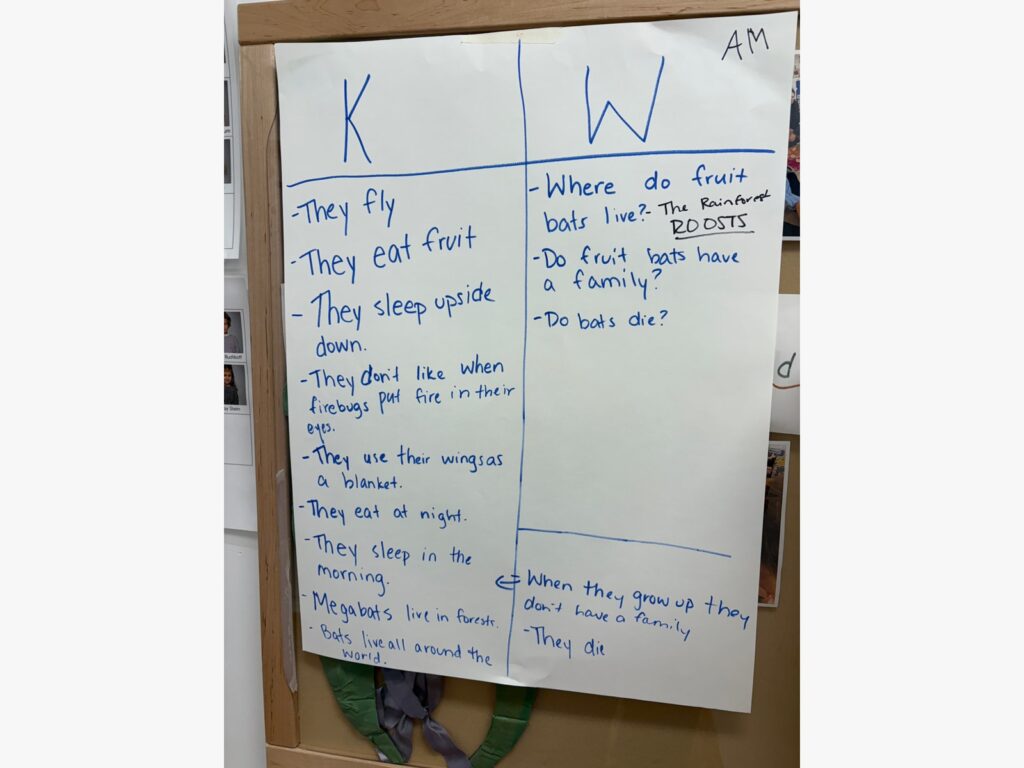 AM
K
- They fly
- They eat fruit
- They sleep upside
down.
- They don't like when
firebugs put fire in their
eyes.
- They use their wings as
a blanket.
- They eat at night.
- They sleep in the
morning.
- Megabats live in forests.
- Bats live all around the
world.
W
- Where do fruit
bats live? - The Rainforest
ROOSTS
- Do fruit bats have
a family?
- Do bats die?
When they grow up they
don't have a family
- They die
d